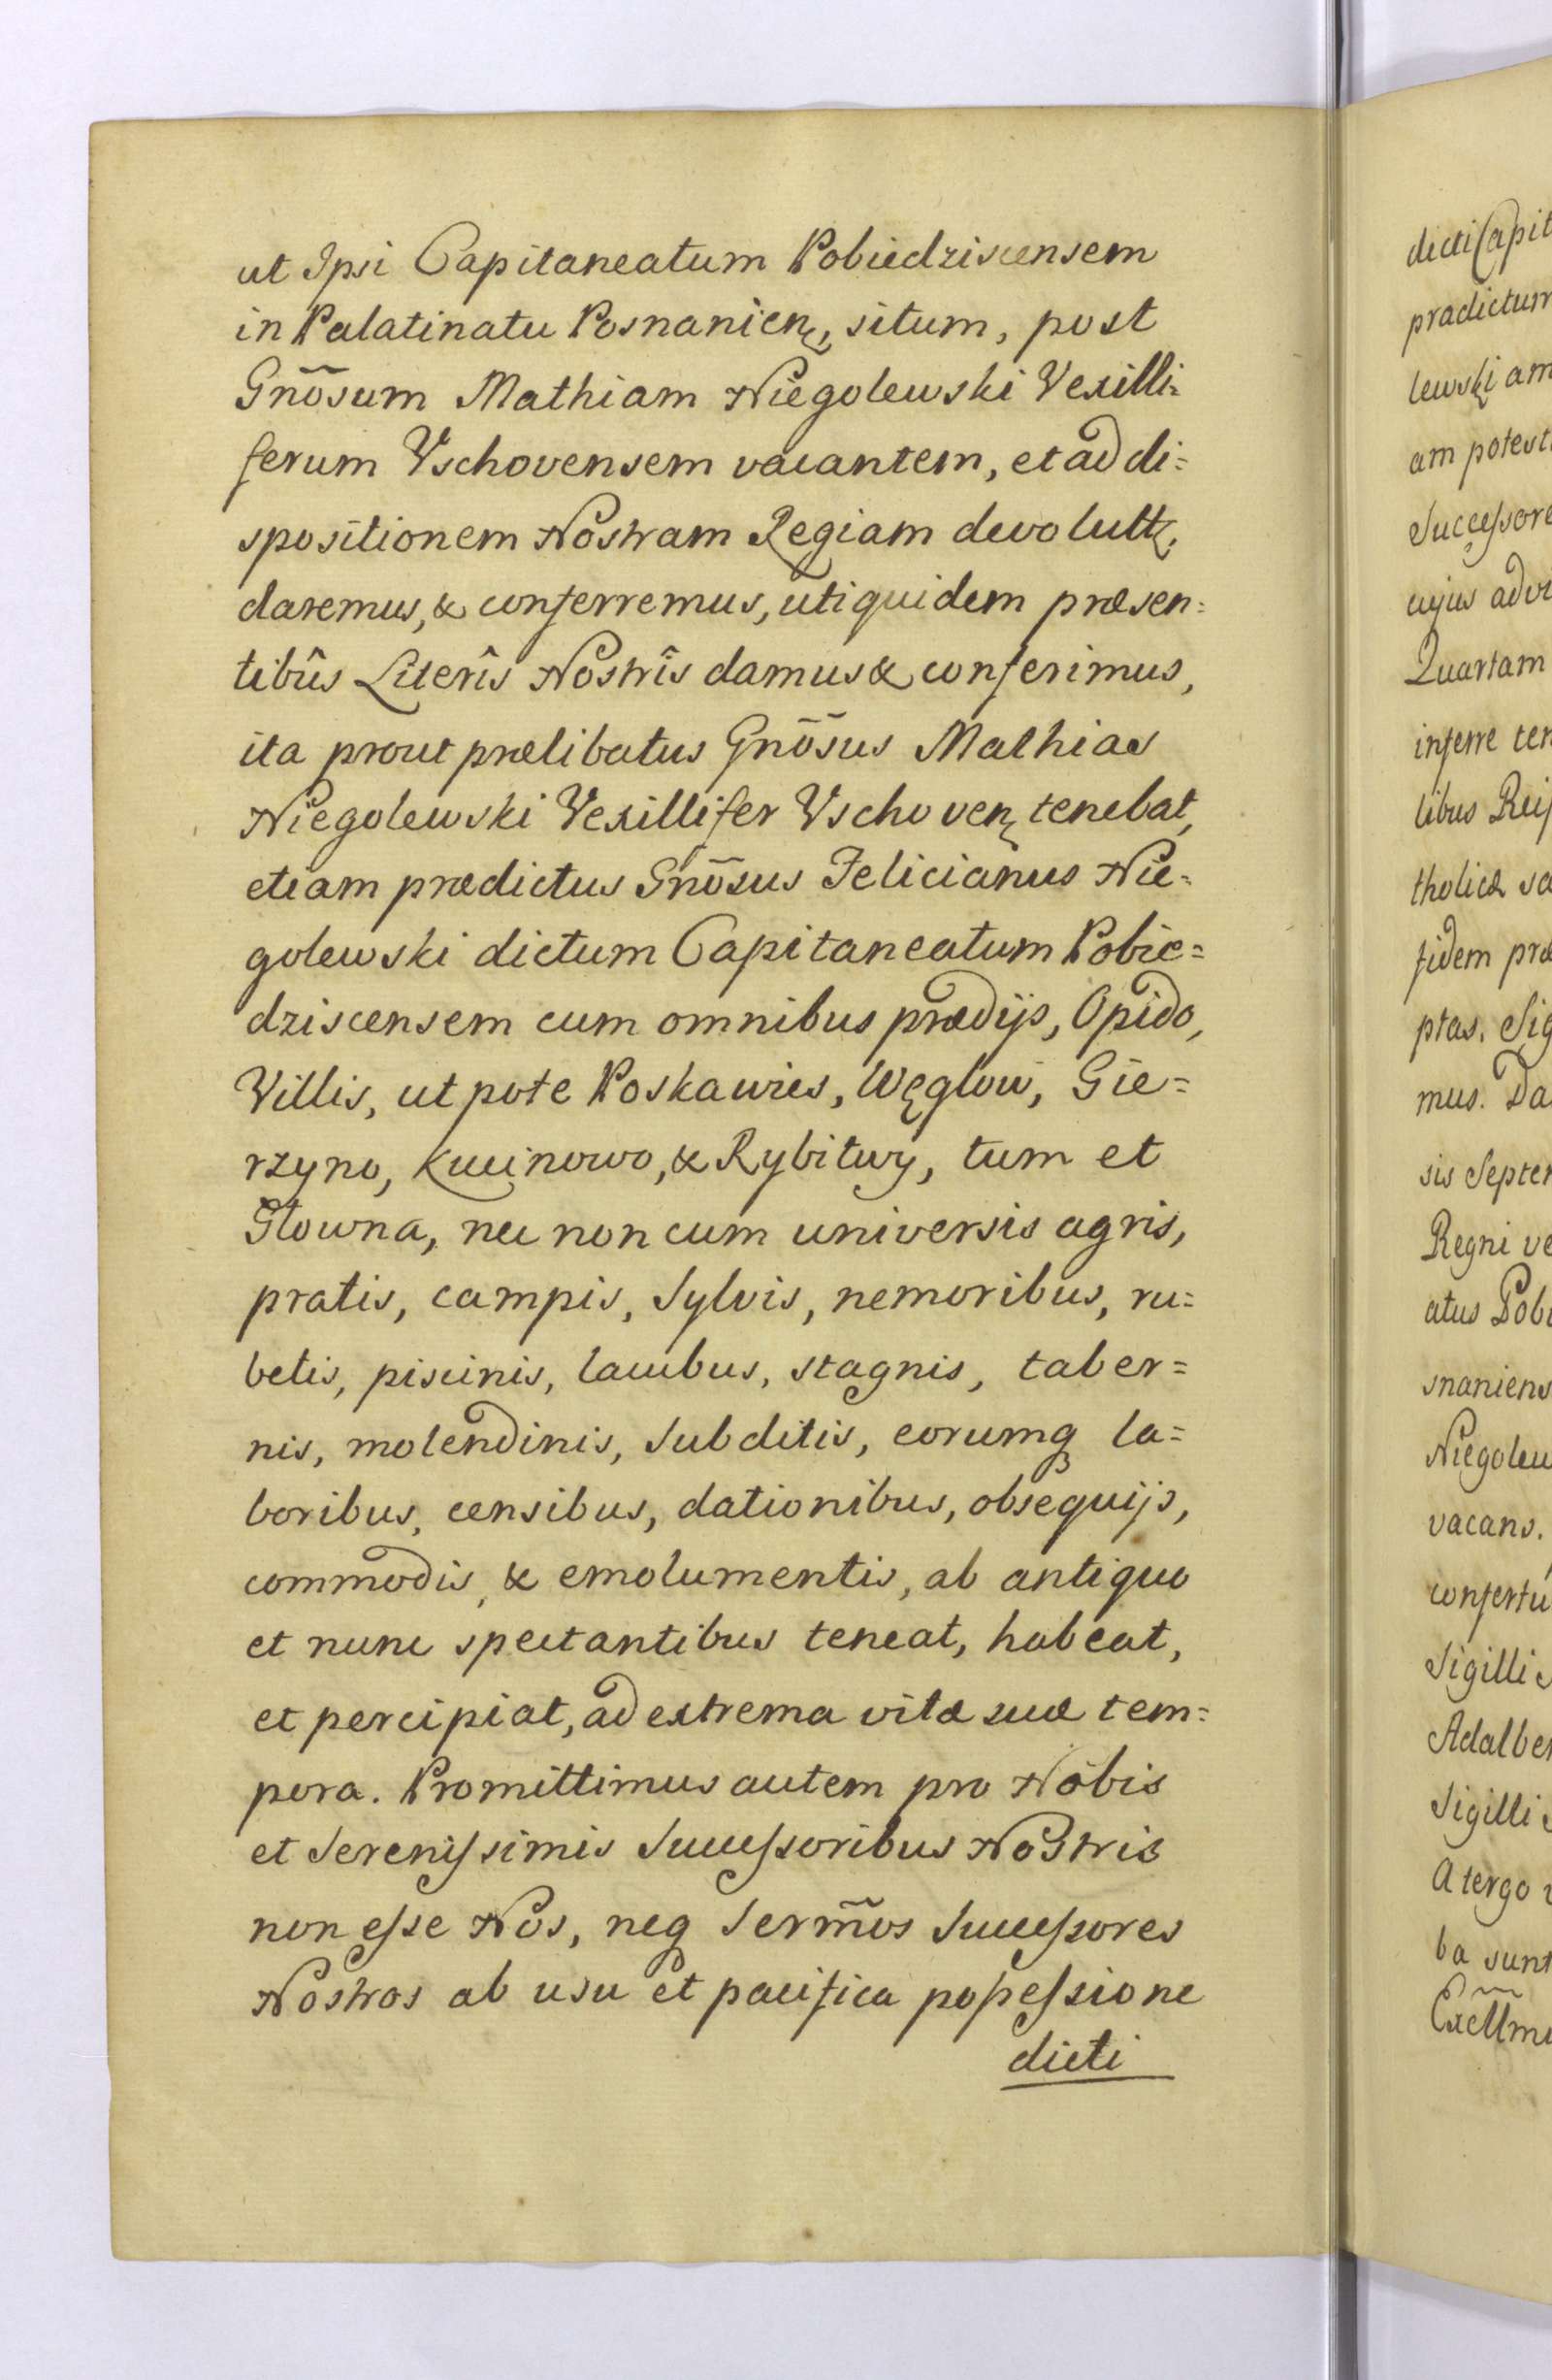 ut Ipsi Capitaneatum Pobiedziscensem
in Palatinatu Posnanien, situm, post
Gnõsum Mathiam Niegolewski Vexilli=
ferum Vschovensem vacantem, et ad di=
spositionem Nostram Regiam devolutt,
daremus, & conferremus, uti quidem præsen=
tibûs Literîs Nostrîs damus & conferimus,
ita prout prælibatus Gnõsus Mathias
Niegolewski Vexillifer Vschoven tenebat,
etiam prædictus Gnõsus Felicianus Nie=
golewski dictum Capitaneatum Pobie=
dziscensem cum omnibus prædijs, Opido,
Villis, ut pote Poskawies, Węglow, Gie=
rzyno, Kucinowo, & Rybitwy, tum et
Glowna, nec non cum universis agris,
pratis, campis, Sylvis, nemoribus, ru=
betis, piscinis, lacubus, stagnis, taber=
nis, molendinis, Subditis, eorumq la=
boribus, censibus, dationibus, obsequijs,
commodis, & emolumentis, ab antiquo
et nunc spectantibus teneat, habeat,
et percipiat, ad extrema vitæ suæ tem=
pora. Promittimus autem pro Nobis
et Serenissimis Successoribus Nostris
non esse Nos, neq Sermõs Successores
Nostros ab usu et pacifica possessione
dicti
dicti Capit
prædictum
lewski am
am potest
Successore
cujus ad vi
Quartam
inferre ten
libus Reip
tholicæ
fidem præ
ptas. Sig
mus. Da
sis Septem
Regni ve
atus Pobi
snaniens
Niegolew
vacans.
confertu
Sigilli
Adalber
Sigilli
A tergo
ba sunt